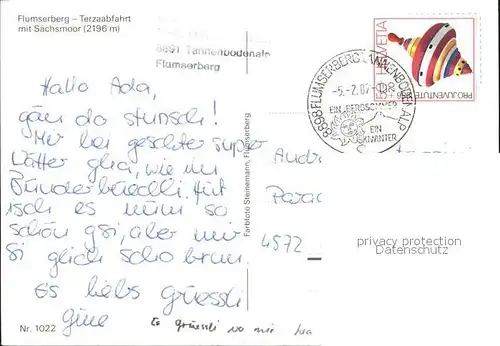 Flumserberg – Terzaabfahrt
mit Sächsmoor (2196 m)
8891 Tannenbodenalp
Flumserberg
HELVETIA
PRO JUVENTUTE 1986
8898 FLUMSERBERG TANNENBODENALP
-5.-2.87
EIN BERGSOMMER
EIN
SKIWINTER
Hallo Ada,
gäu do stunsch!
Mir hei geschter super
Wätter gha, wie im
Bünderbüechli. Hüt
isch es nüm so
schön gsi, aber mir
si glich scho brun.
Es liebs grüessli
Gine
Es grüessli vo mir
Andr
Para
4572
Farbfoto Steinemann, Flumserberg
privacy protection
Datenschutz
Nr. 1022